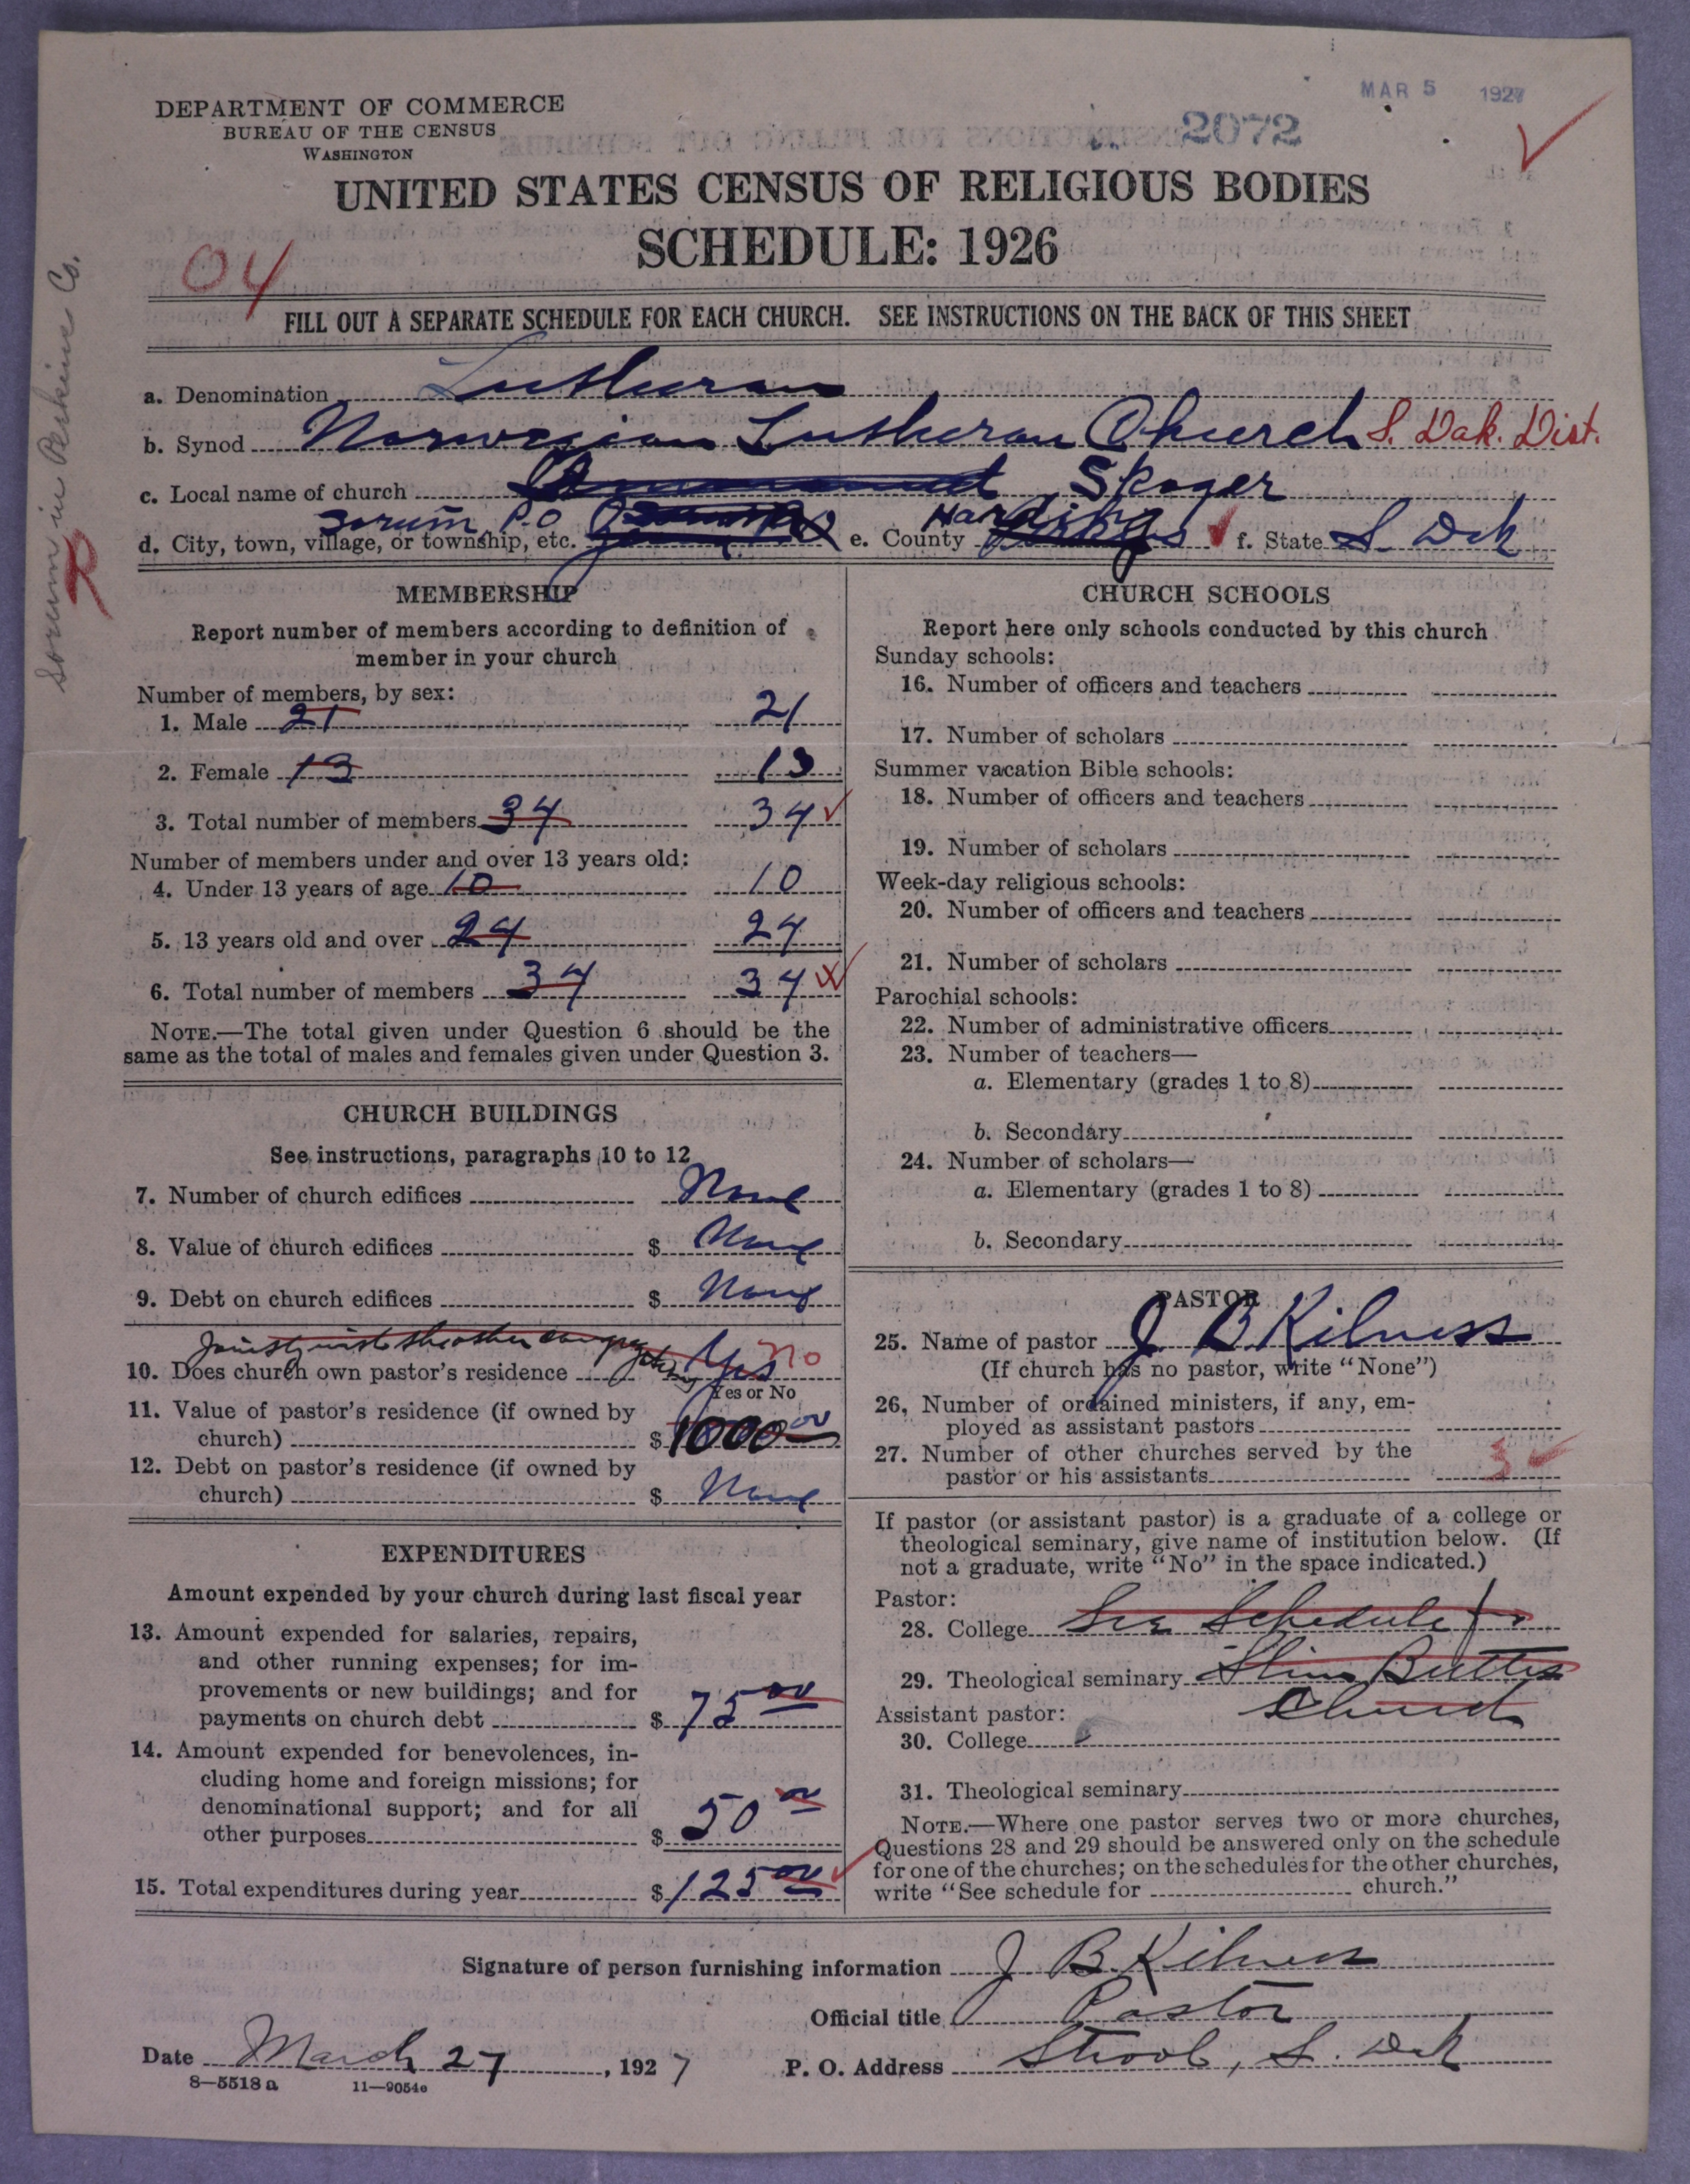 MAR 5 1927
2072
DEPARTMENT OF COMMERCE
BUREAU OF THE CENSUS
WASHINGTON
UNITED STATES CENSUS OF RELIGIOUS BODIES
SCHEDULE: 1926
04
FILL OUT A SEPARATE SCHEDULE FOR EACH CHURCH. SEE INSTRUCTIONS ON THE BACK OF THIS SHEET
Sorum in Perkins Co.
R
a. Denomination Lutheran
b. Synod Norwegian Lutheran Church S. Dak. Dist.
c. Local name of church Skoger
d. City, town, village, or township, etc. Sorum P.O e. County Harding f. State S. Dak
MEMBERSHIP
Report number of members according to definition of
member in your church
Number of members, by sex:
1. Male 21 21
2. Female 13 13
3. Total number of members 34 34
Number of members under and over 13 years old:
4. Under 13 years of age 10 10
5. 13 years old and over 24 24
6. Total number of members 34 34
NOTE.—The total given under Question 6 should be the
same as the total of males and females given under Question 3.
CHURCH BUILDINGS
See instructions, paragraphs 10 to 12
7. Number of church edifices None
8. Value of church edifices $ None
9. Debt on church edifices $ None
Jointly with the other congregations
10. Does church own pastor's residence Yes no
Yes or No
11. Value of pastor's residence (if owned by
church) $ 1000 00
12. Debt on pastor's residence (if owned by
church) $ None
EXPENDITURES
Amount expended by your church during last fiscal year
13. Amount expended for salaries, repairs,
and other running expenses; for im-
provements or new buildings; and for
payments on church debt $ 75 00
14. Amount expended for benevolences, in-
cluding home and foreign missions; for
denominational support; and for all
other purposes $ 50 00
15. Total expenditures during year $ 125 00
CHURCH SCHOOLS
Report here only schools conducted by this church
Sunday schools:
16. Number of officers and teachers
17. Number of scholars
Summer vacation Bible schools:
18. Number of officers and teachers
19. Number of scholars
Week-day religious schools:
20. Number of officers and teachers
21. Number of scholars
Parochial schools:
22. Number of administrative officers
23. Number of teachers—
a. Elementary (grades 1 to 8)
b. Secondary
24. Number of scholars—
a. Elementary (grades 1 to 8)
b. Secondary
PASTOR
25. Name of pastor J B Kilness
(If church has no pastor, write "None")
26. Number of ordained ministers, if any, em-
ployed as assistant pastors
27. Number of other churches served by the
pastor or his assistants 3
If pastor (or assistant pastor) is a graduate of a college or
theological seminary, give name of institution below. (If
not a graduate, write "No" in the space indicated.)
Pastor:
28. College See Schedule for
29. Theological seminary Slim Buttes
Church
Assistant pastor:
30. College
31. Theological seminary
NOTE.—Where one pastor serves two or more churches,
Questions 28 and 29 should be answered only on the schedule
for one of the churches; on the schedules for the other churches,
write "See schedule for church."
Signature of person furnishing information J B. Kilness
Official title Pastor
Date March 27, 1927 P. O. Address Strool, S. Dak
8—5518 a 11—9054e